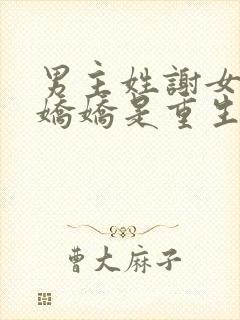 男主姓謝女
嬌嬌是重生
曹大麻子